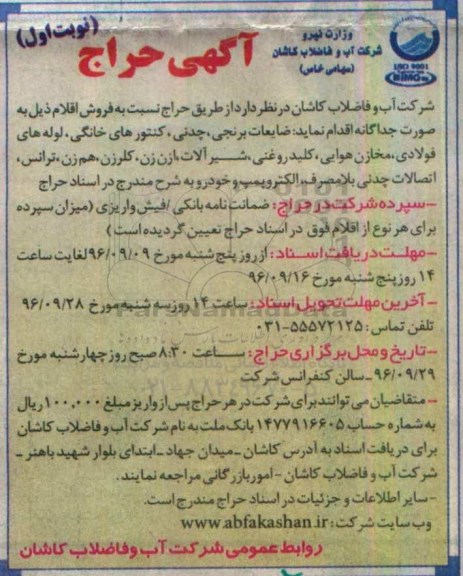 (نوبت اول)
آگهی حراج
وزارت نیرو
شرکت آب و فاضلاب کاشان
(سهامی خاص)
ISO 9001
شرکت آب و فاضلاب کاشان در نظر دارد از طریق حراج نسبت به فروش اقلام ذیل به
صورت جداگانه اقدام نماید: ضایعات برنجی، چدنی، کنتور های خانگی، لوله های
فولادی، مخازن هوایی، کلید روغنی، شیر آلات، ازن زن، کلرزن، هم زن، ترانس،
اتصالات چدنی بلامصرف، الکتروپمپ و خودرو به شرح مندرج در اسناد حراج
- سپرده شرکت در حراج: ضمانت نامه بانکی / فیش واریزی (میزان سپرده
برای هر نوع از اقلام فوق در اسناد حراج تعیین گردیده است)
- مهلت دریافت اسناد: از روز پنج شنبه مورخ ۹۶/۰۹/۰۹ لغایت ساعت
۱۴ روز پنج شنبه مورخ ۹۶/۰۹/۱۶
- آخرین مهلت تحویل اسناد: ساعت ۱۴ روز سه شنبه مورخ ۹۶/۰۹/۲۸
تلفن تماس: ۵۵۵۷۲۱۲۵-۰۳۱
- تاریخ و محل برگزاری حراج: ساعت ۸:۳۰ صبح روز چهارشنبه مورخ
۹۶/۰۹/۲۹ - سالن کنفرانس شرکت
- متقاضیان می توانند برای شرکت در هر حراج پس از واریز مبلغ ۱۰۰,۰۰۰ ریال
به شماره حساب ۱۴۷۷۹۱۶۶۰۵ بانک ملت به نام شرکت آب و فاضلاب کاشان
برای دریافت اسناد به آدرس کاشان - میدان جهاد - ابتدای بلوار شهید باهنر -
شرکت آب و فاضلاب کاشان - امور بازرگانی مراجعه نمایند.
- سایر اطلاعات و جزئیات در اسناد حراج مندرج است.
وب سایت شرکت: www.abfakashan.ir
روابط عمومی شرکت آب و فاضلاب کاشان